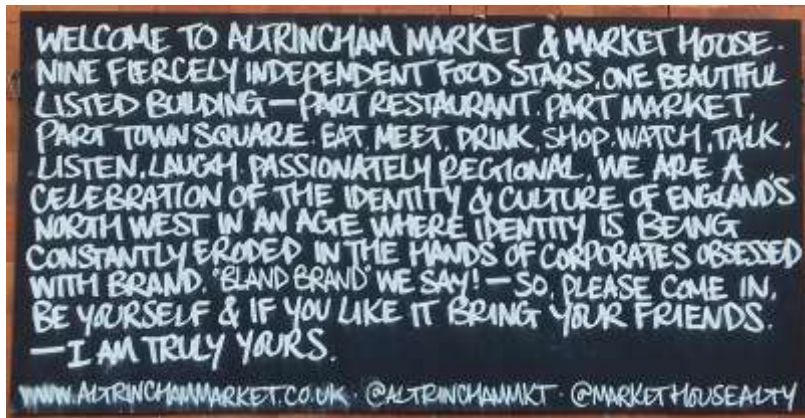 WELCOME TO ALTRINCHAM MARKET & MARKET HOUSE.
NINE FIERCELY INDEPENDENT FOOD STARS, ONE BEAUTIFUL
LISTED BUILDING — PART RESTAURANT. PART MARKET.
PART TOWN SQUARE. EAT, MEET, DRINK, SHOP, WATCH, TALK,
LISTEN, LAUGH. PASSIONATELY REGIONAL, WE ARE A
CELEBRATION OF THE IDENTITY & CULTURE OF ENGLAND'S
NORTH WEST IN AN AGE WHERE IDENTITY IS BEING
CONSTANTLY ERODED IN THE HANDS OF CORPORATES OBSESSED
WITH BRAND. "BLAND BRAND" WE SAY! — SO, PLEASE COME IN,
BE YOURSELF & IF YOU LIKE IT BRING YOUR FRIENDS.
— I AM TRULY YOURS.
WWW.ALTRINCHAMMARKET.CO.UK · @ALTRINCHAMMKT · @MARKETHOUSEALTY